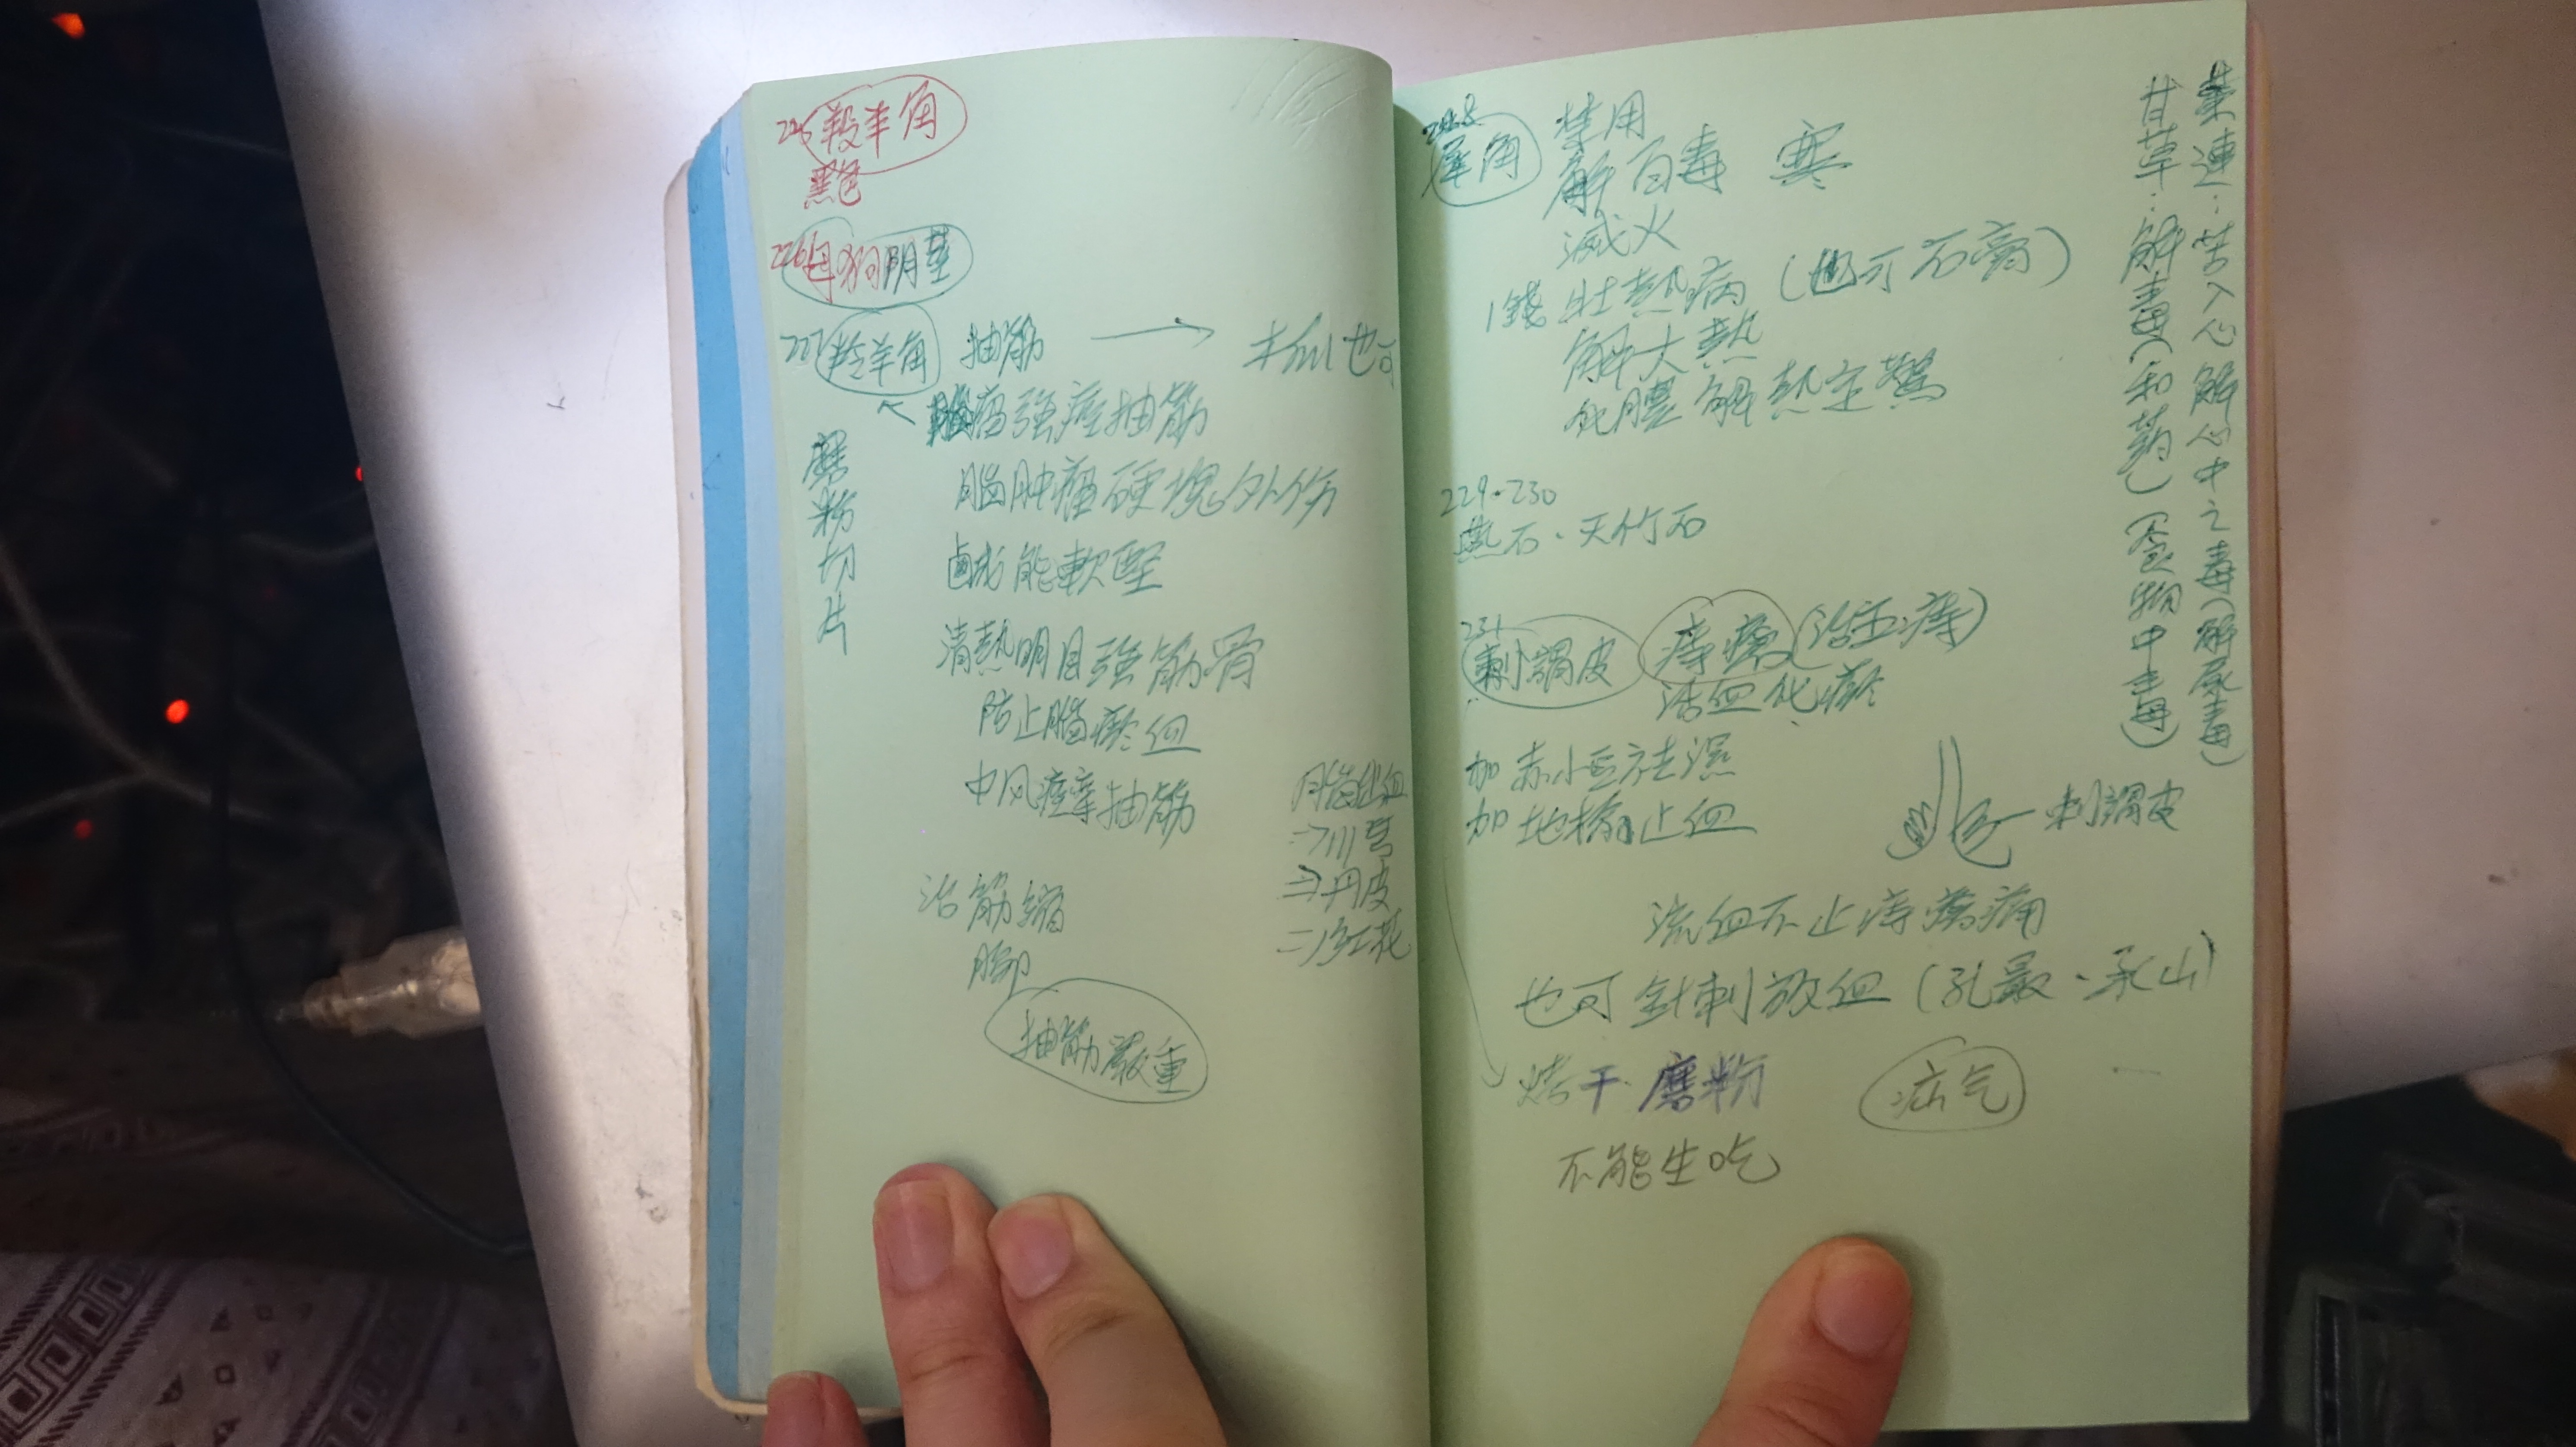 225 羖羊角
黑色
226 牡狗阴莖
227 羚羊角 抽筋 → 木瓜也可
磨粉切片
腦瘤強痙抽筋
腦肿瘤硬塊外伤
鹹能軟堅
清熱明目強筋骨
防止腦瘀血
中风痙孿抽筋
腦出血
⇒川芎
⇒丹皮
⇒紅花
治筋縮
腳
抽筋嚴重
228
犀角 禁用
解百毒 寒
滅火
1錢 壯熱病 (也可石膏)
解大熱
化膿解熱定驚
229.230
燕石、天竹石
231
刺謂皮 痔瘡 (治五痔)
活血化瘀
加 赤小豆祛濕
加 地榆止血
刺謂皮
流血不止痔瘡痛
也可針刺放血 (孔最、承山)
烤干 磨粉 疝气
不能生吃
黃連：苦入心解心中之毒(解尿毒)
甘草：解毒(和药) (食物中毒)